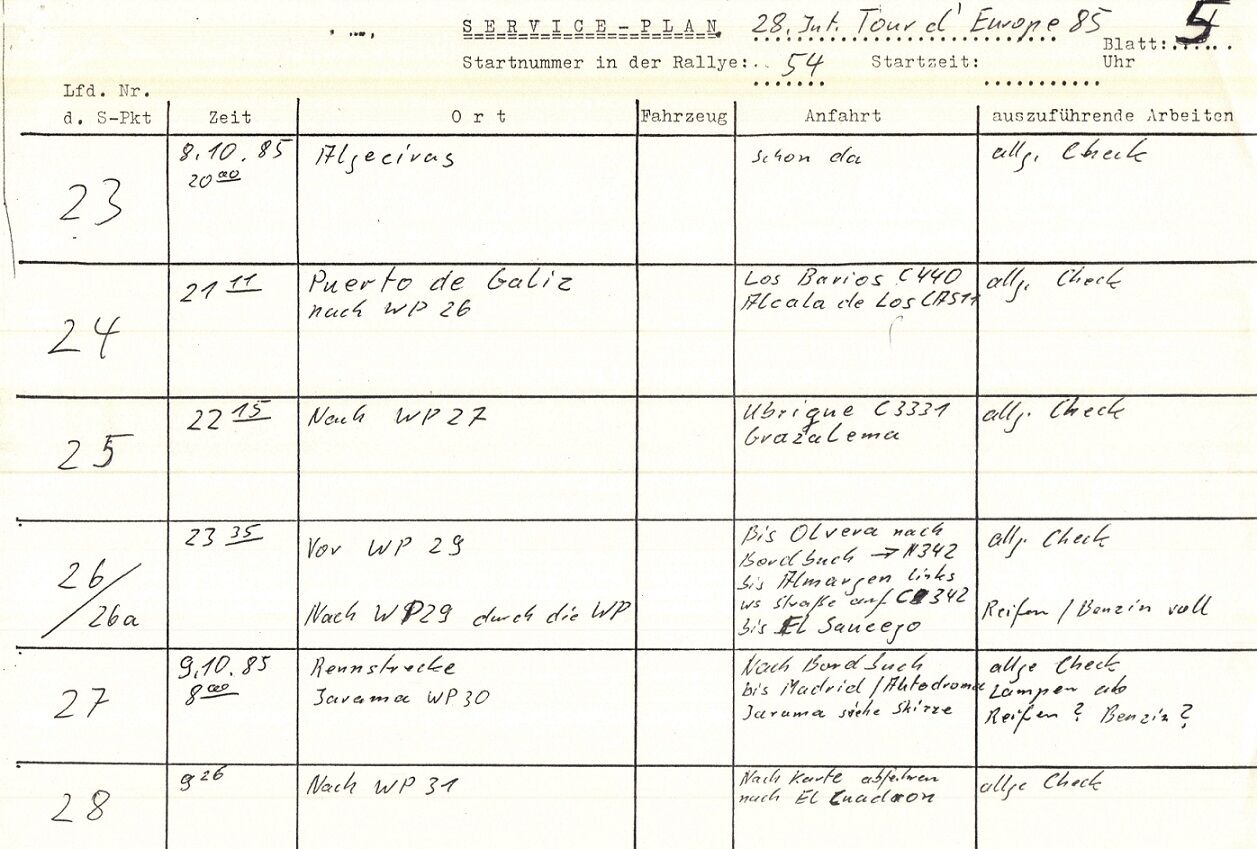 SERVICE-PLAN 28. Int. Tour d' Europe 85
Blatt: 5
Startnummer in der Rallye: 54 Startzeit: Uhr
Lfd. Nr.
d. S-Pkt Zeit Ort Fahrzeug Anfahrt auszuführende Arbeiten
23 8.10.85 Algeciras schon da allg. Check
20 00
24 21 11 Puerto de Galiz Los Barios C440 allg. Check
nach WP 26 Alcala de Los
25 22 15 Nach WP 27 Ubrique C3331 allg. Check
Grazalema
26/26a 23 35 Vor WP 29 Bis Olvera nach allg. Check
Bordbuch → N342
bis Almargen links
Straße auf C 342
Nach WP29 durch die WP bis El Saucejo Reifen / Benzin voll
27 9.10.85 Rennstrecke Nach Bordbuch allge Check
8 00 Jarama WP 30 bis Madrid / Autodrome Lampen ab
Jarama siehe Skizze Reifen ? Benzin ?
28 9 26 Nach WP 31 Nach Karte abfahren allge Check
nach El